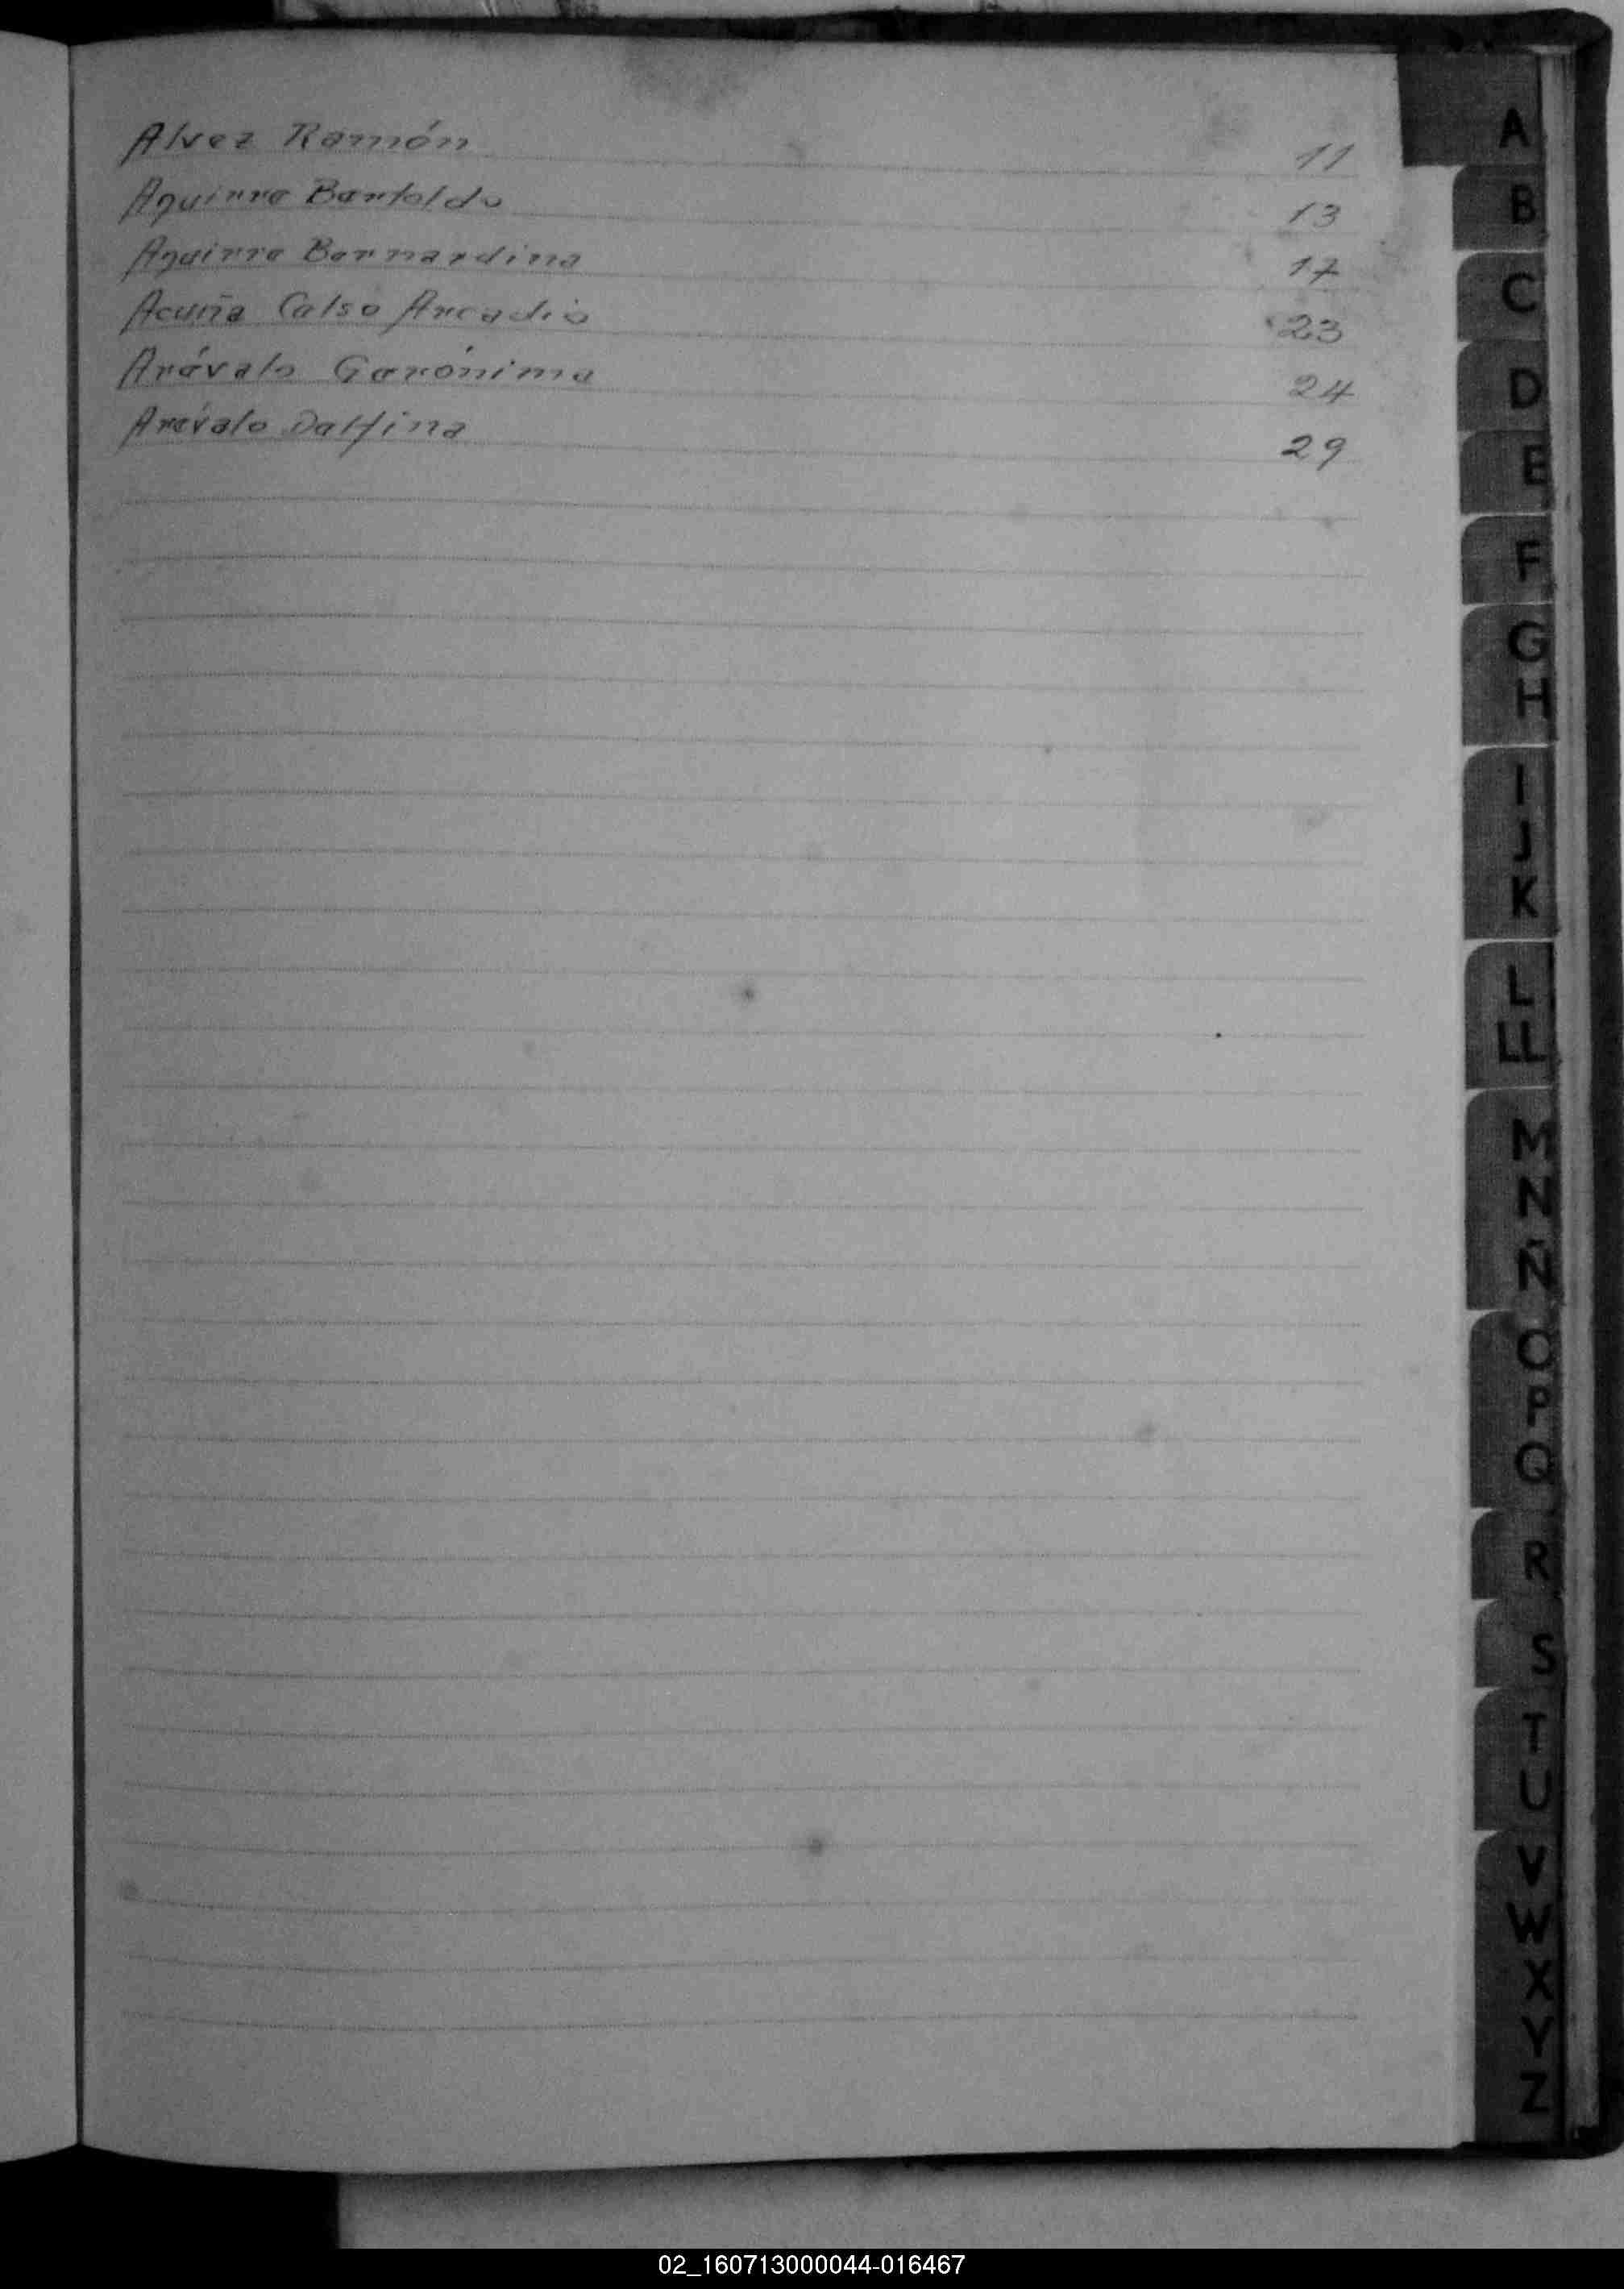 Alvez Ramón 11
Aguirre Bartoldo 13
Aguirre Bernardina 17
Acuña Celso Arcadio 23
Arévalo Gerónima 24
Arévalo Delfina 29
A
B
C
D
E
F
G
H
I
J
K
L
LL
M
N
Ñ
O
P
Q
R
S
T
U
V
W
X
Y
Z
02_160713000044-016467